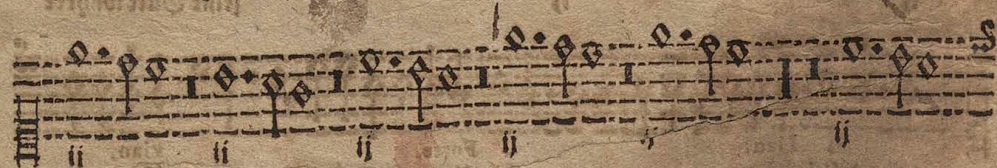 ij ij ij ij ij ij